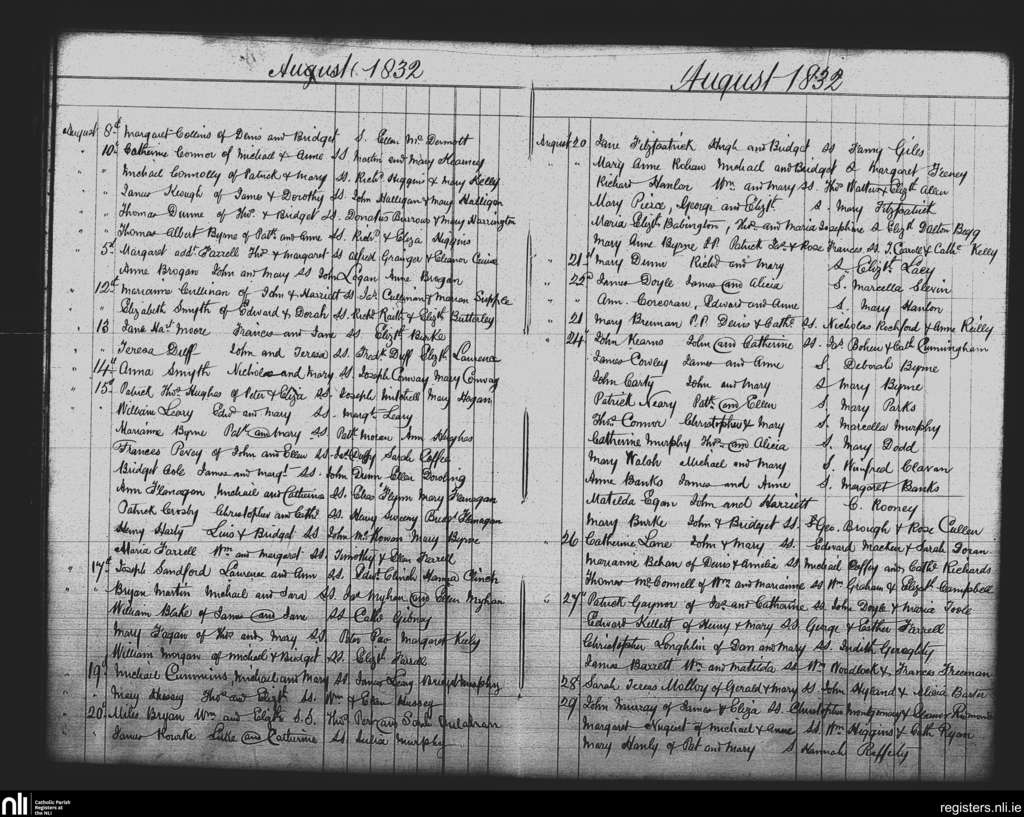 August 1832
August 8th Margaret Collins of Denis and Bridget S. Ellen McDermott
" 10th Catherine Connor of Michael & Anne SS Martin and Mary Kearney
" " Michael Connolly of Patrick & Mary SS. Richd Higgins & Mary Kelly
" " James Keough of James & Dorothy SS. John Halligan & Mary Halligan
" " Thomas Dunne of Thos & Bridget SS. Donatus Burrows & Mary Harrington
" " Thomas Albert Byrne of Patk and Anne SS. Richd & Eliza Higgins
" 5th Margaret Farrell Thos & Margaret SS Alfred Granger & Eleanor
Anne Brogan John and Mary SS John Logan Anne Brogan
" 12th Marianne Cullinan of John & Harriett SS Jas Cullinan & Marian Supple
" " Elizabeth Smyth of Edward & Dorah SS. Richd & Elizth Butterley
" 13 Jane Moore Francis and Jane SS. Elizth Burke
" " Teresa Duff John and Teresa SS. Fredk Duff Elizth Laurence
" 14th Anna Smyth Nicholas and Mary SS. Joseph Conway Mary Conway
" 15th Patrick Thos Hughes of Peter & Eliza SS. Joseph Mitchell Mary Hogan
" William Leary Edwd and Mary SS. Margt Leary
Marianne Byrne Patk and Mary SS. Patk Moran Ann Hughes
Frances Pavey of John and Ellen SS. Jas Duffy Sarah
Bridget Cole James and Margt SS. John Dunn Ellen Dowling
Ann Flanagan Michael and Catherine SS. Chas Flynn Mary Flanagan
Patrick Crosby Christopher and Cathe SS. Henry Sweeny Bridgt Flanagan
Henry Harty Luis & Bridget SS. John McKowan Mary Byrne
Maria Farrell Wm and Margaret SS. Timothy & Ellen Farrell
" 17th Joseph Sandford Laurence and Ann SS. Edwd Clinch Hanna Clinch
" Bryan Martin Michael and Sara SS. Jas Myhan and Ellen Myhan
William Blake of James and Jane SS Cathe Gibney
Mary Fagan of Thos and Mary SS. Peter Margaret Kiely
William Morgan of Michael & Bridget SS. Elizth Farrell
" 19th Michael Cummins, Michael and Mary SS. James Leary Bridget Murphy
" " Mary Hussey Thos and Elizth SS. Wm & Ellen Hussey
" 20th Miles Bryan Wm and Elizth S.S. Thos and Sarah
" " James Rourke Luke and Catherine SS. Julia Murphy
August 1832
August 20 Jane Fitzpatrick Hugh and Bridget SS Fanny Giles
" " Mary Anne Michael and Bridget S Margaret Feeney
Richard Hanlon Wm and Mary SS. Thos & Elizth
Mary Pierce, George and Elizth S. Mary Fitzpatrick
Maria Elizth Babington, Thos and Maria Josephine S Elizth Dalton Begg
Mary Anne Byrne P.P. Patrick Jos & Rose Frances SS. & Cathe Kelly
" 21st Mary Dunn Richd and Mary S. Elizth Lacy
" 22nd James Doyle James and Alicia S. Marcella Slevin
" Ann. Corcoran, Edward and Anne S. Mary Hanlon
" 21 Mary Brennan P.P. Denis & Cathe SS. Nicholas Rochford & Anne Reilly
" 24th John Kearns John and Catherine SS. Jas & Cath Cunningham
James Cowley James and Anne S. Deborah Byrne
John Carty John and Mary S Mary Byrne
Patrick Neary Patk and Ellen S. Mary Parks
Thos Connor Christopher & Mary S. Marcella Murphy
Catherine Murphy Thos and Alicia S. Mary Dodd
Mary Walsh Michael and Mary S. Winifred Clavan
Anne Banks James and Anne S. Margaret Banks
Matilda Egan John and Harriett C. Rooney
Mary Burke John & Bridget SS. Geo. Brough & Rose Cullen
" 26 Catherine Lane John & Mary SS. Edward & Sarah Foran
Marianne Behan of Denis & Amelia SS Michael and Cathe Richards
Thomas McConnell of Wm and Marianne SS Wm Graham & Elizth Campbell
" 27th Patrick Gaynor of Jas and Catherine SS. John Doyle & Maria Toole
Edward Kellett of Henry & Mary SS. George & Esther Farrell
Christopher Loughlin of Dan and Mary SS. Judith Geraghty
James Barrett Wm and Matilda SS Wm Woodlock & Frances Freeman
28th Sarah Teresa Molloy of Gerald & Mary SS. John Hyland & Alicia
29 John Murray of James & Eliza SS. Christopher Montgomery & Eleanor
Margaret Nugent of Michael & Anne SS. Wm Higgins & Cath Ryan
Mary Hanly of Pat and Mary S Hannah Rafferty
nli Catholic Parish
Registers at
the NLI
registers.nli.ie